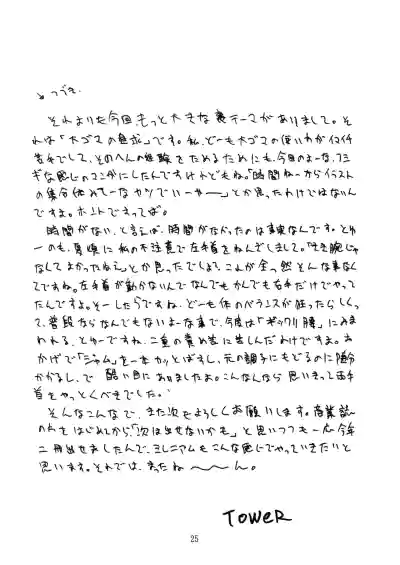 ↘つづき.
それよりも今回もっと大きな裏テーマがありまして。そ
れは「大ゴマの追求」です。私、どーも大ゴマの使いわけがイマイチ
苦手でして、そのへんの経験をためるためにも、今回のよーな、フシ
ギな感じのマンガにしたんですけれどもね。「時間ねーからイラスト
の集合体みてーなヤツでいーやー」とか思ったわけではないん
ですよ。ホントですってば。
時間がない、と言えば、時間がなかったのは事実なんです。とゆ
ーのも、夏頃に私の不注意で左手首をねんざしまして。「きき腕じゃ
なくてよかったねえ」とか思ったでしょ?これが全っ然そんな事なく
てですね。左手首が動かないんでなんでもかんでも右手だけでやって
たんですよ。そーしたらですね、どーも体のバランスが狂ったらしく
て、普段ならなんでもないよーな事で、今度は「ギックリ腰」にみま
われる、とゆーですね、二重の責め苦に苦しんだわけですよ。お
かげで「ジャム」を一本カッとばすし、元の調子にもどるのに随分
かかるし、で 酷い目にあいましたよ。こんなんなら思いきって両手
首をやっとくべきでした。
そんなこんなで、また次をよろしくお願いします。商業誌
の方をはじめてから、「次は出せないかも」と思いつつも一応今年
二冊出せましたんで、ミレニアムもこんな感じでやっていきたいと
思います。それでは、まったね〜〜ん。
TOWER
25